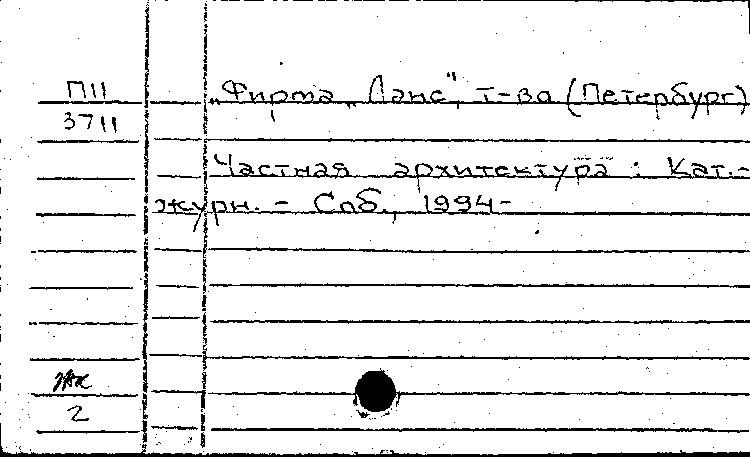 П11
3711
„Фирма „Ланс", т-во (Петербург)
Частная архитектура : Кат.-
журн. - Спб., 1994-
2